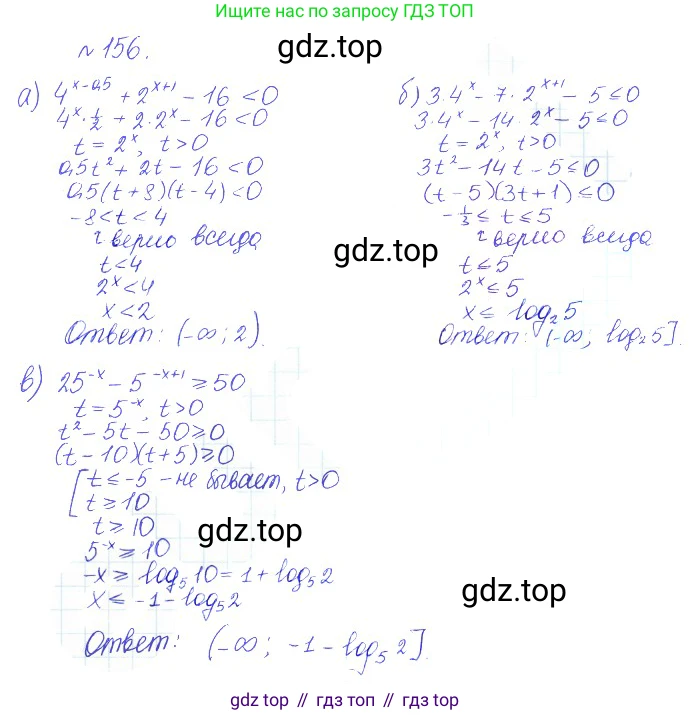 Ищите нас по запросу ГДЗ ТОП
№156.
gdz.top
а) 4^{x-0,5} + 2^{x+1} - 16 < 0
4^x · 1/2 + 2·2^x - 16 < 0
t = 2^x, t>0
0,5t² + 2t - 16 < 0
0,5(t+8)(t-4) < 0
-8 < t < 4
верно всегда
t < 4
2^x < 4
x < 2
Ответ: (-∞; 2).
б) 3·4^x - 7·2^{x+1} - 5 ≤ 0
3·4^x - 14·2^x - 5 ≤ 0
t = 2^x, t>0
3t² - 14t - 5 ≤ 0
(t-5)(3t+1) ≤ 0
-1/3 ≤ t ≤ 5
верно всегда
t ≤ 5
2^x ≤ 5
x ≤ log₂5
Ответ: (-∞; log₂5].
gdz.top
в) 25^{-x} - 5^{-x+1} ≥ 50
t = 5^{-x}, t>0
t² - 5t - 50 ≥ 0
(t-10)(t+5) ≥ 0
[t ≤ -5 - не бывает, t>0
t ≥ 10
t ≥ 10
5^{-x} ≥ 10
-x ≥ log₅10 = 1 + log₅2
x ≤ -1 - log₅2
Ответ: (-∞; -1 - log₅2].
gdz.top
gdz.top
gdz top // гдз топ // gdz.top